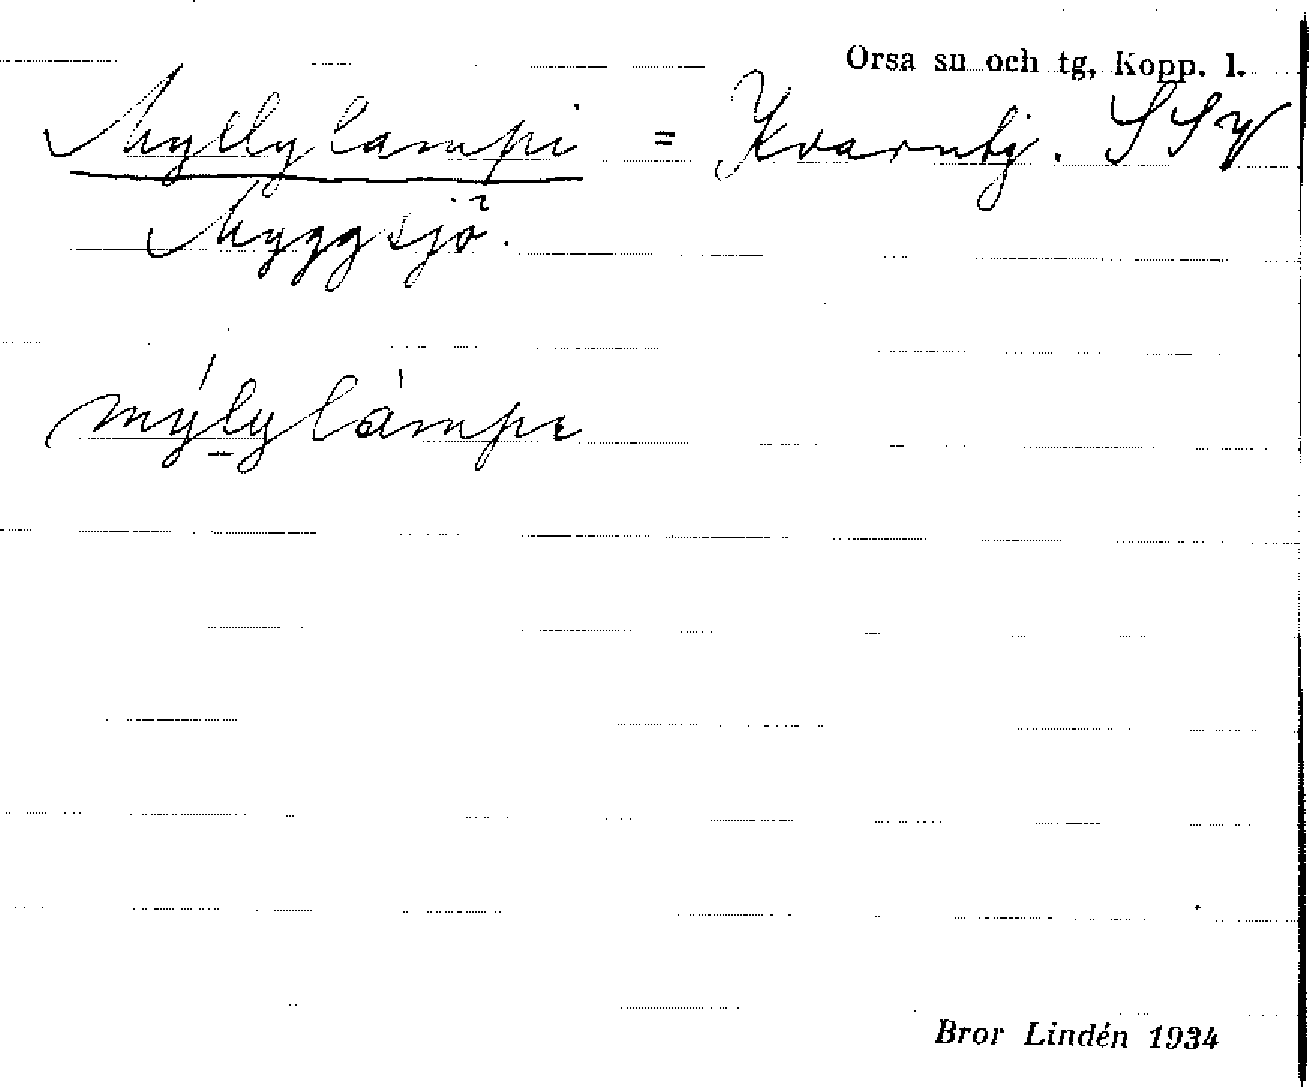 Orsa su och tg, Kopp. l.
Myllylampi = Kvarntj. SSV
Myggsjö.
mýlylámpi
Bror Lindén 1934